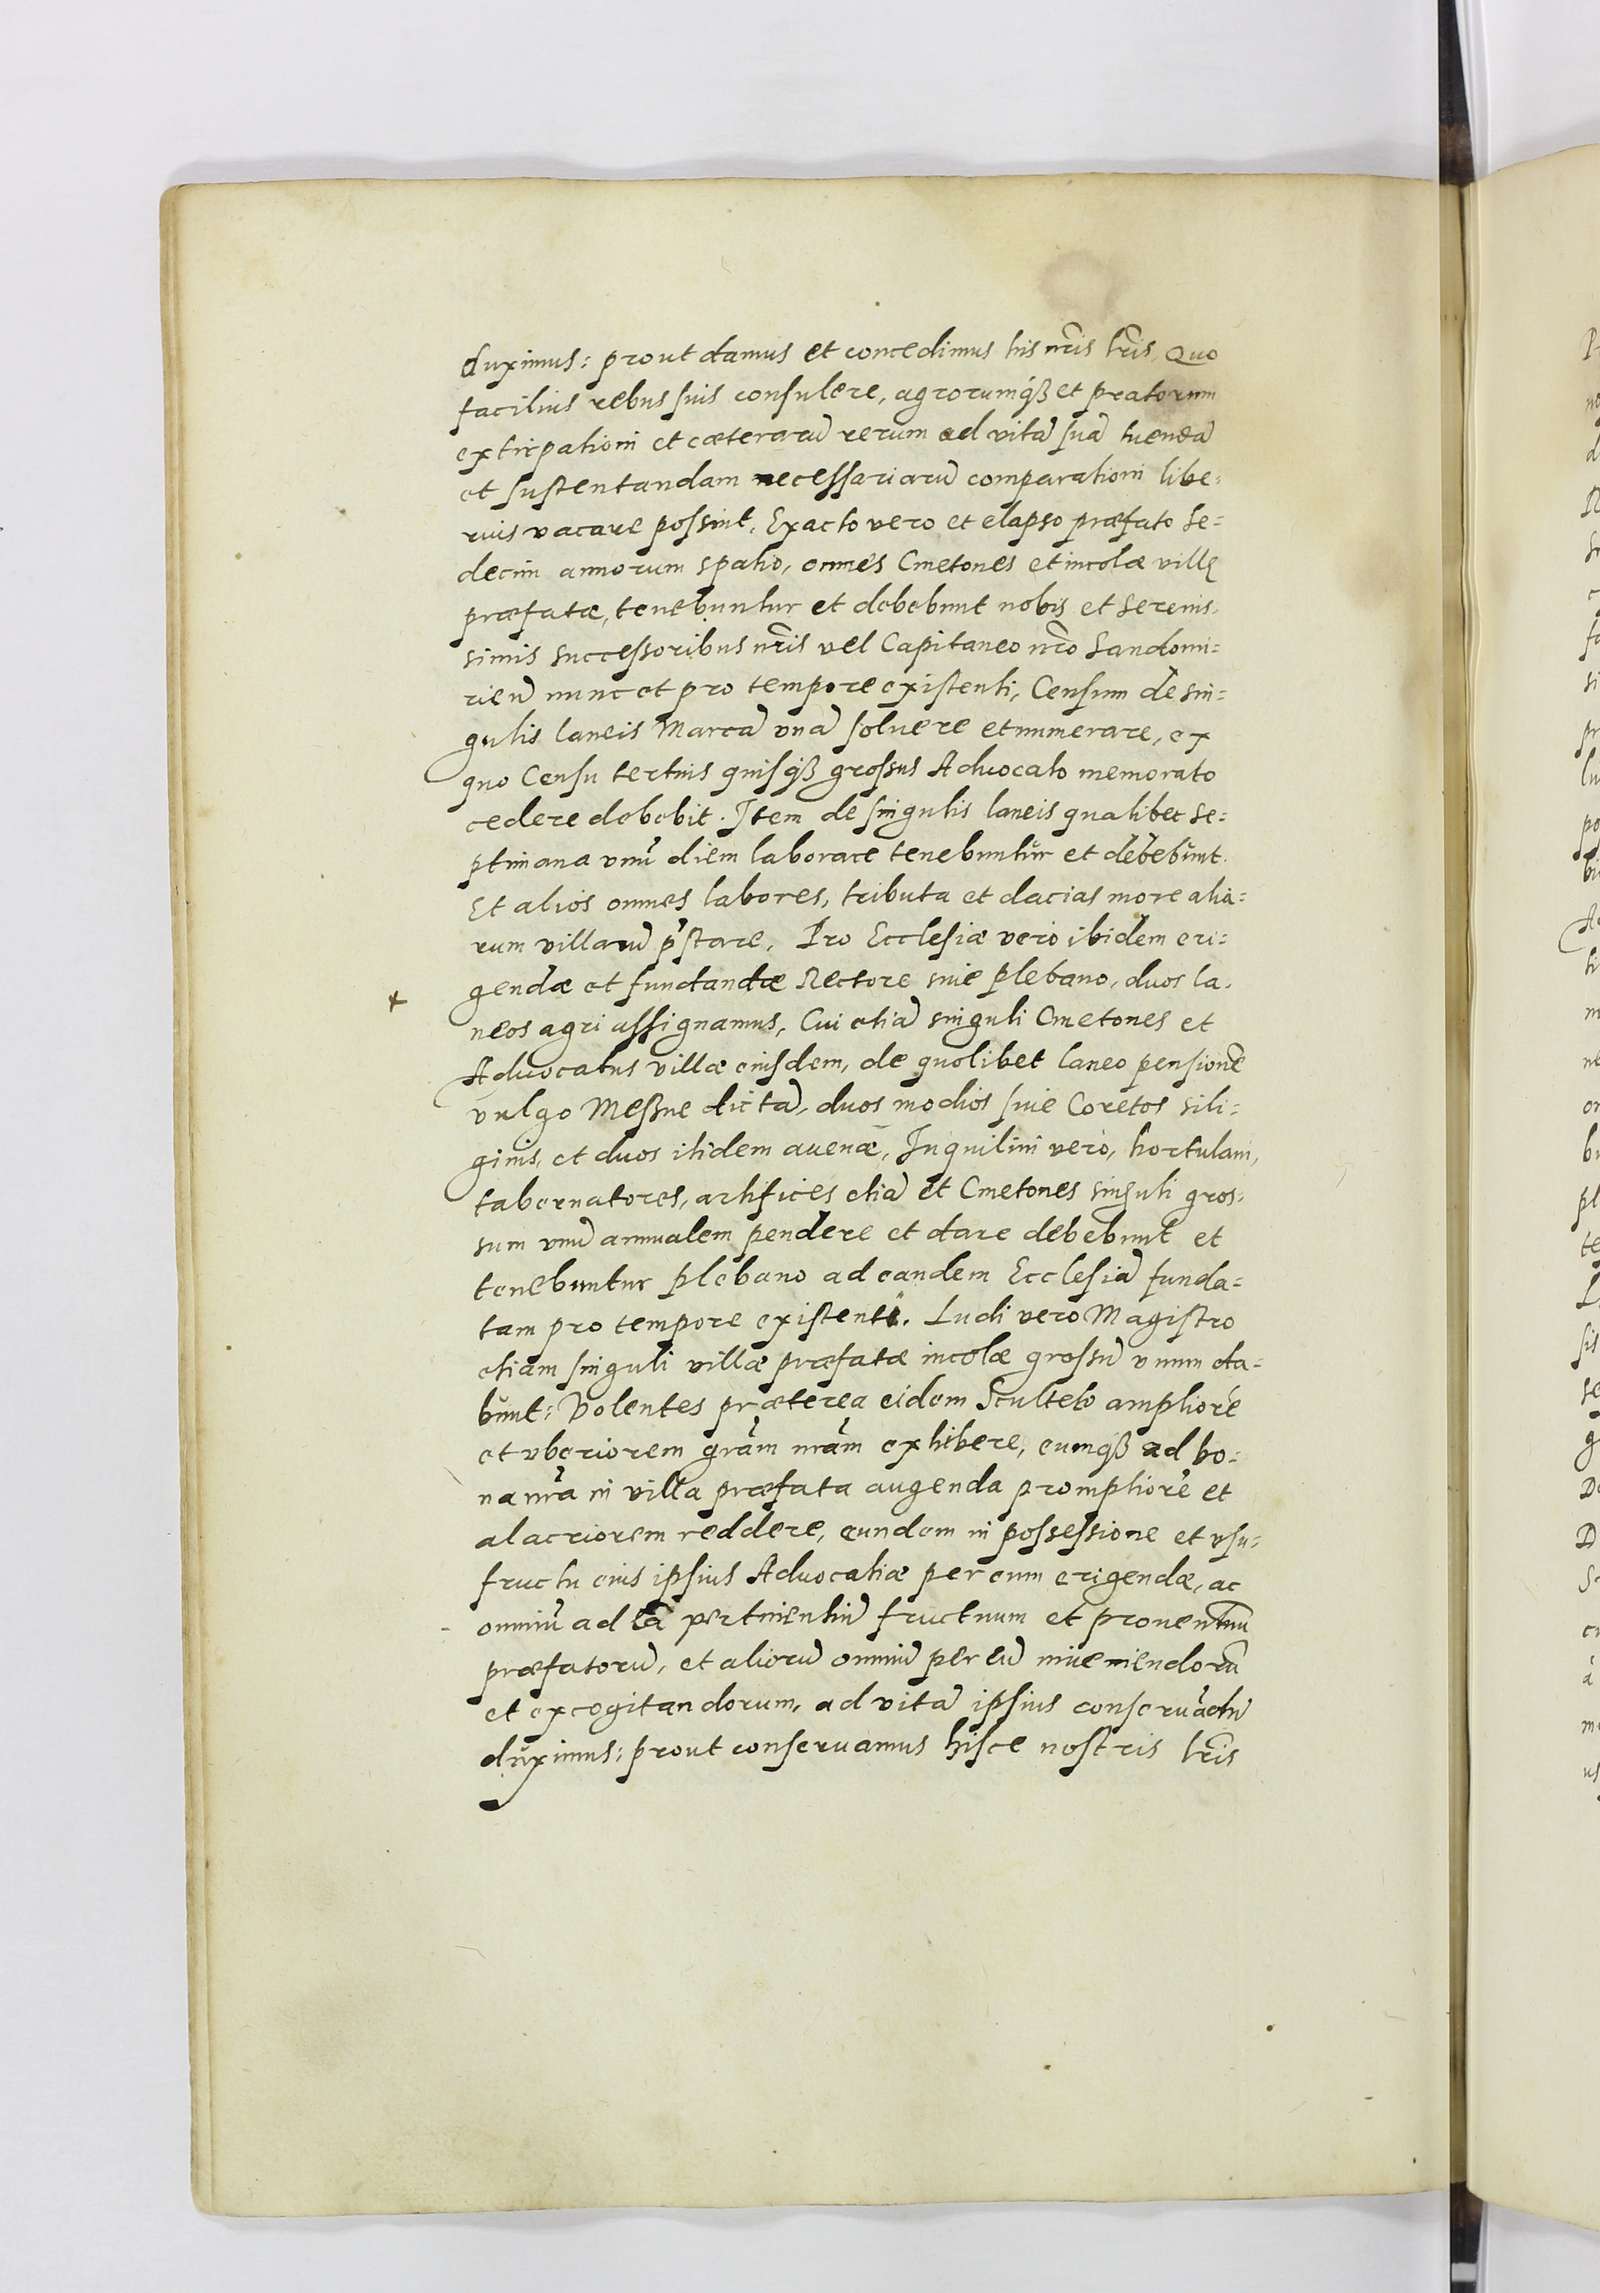 duximus: prout damus et concedimus his nr̃is lr̃is, Quo
facilius rebus suis consulere, agrorumqꝫ et pratorum
extirpationi et cæterarũ rerum ad vitã suã tuendã
et sustentandam necessariarũ comparationi libe-
rius vacare possint. Exacto vero et elapso præfato se-
decim annorum spatio, omnes Cmetones et incolæ villę
præfatæ, tenebuntur et debebunt nobis et serenis-
simis successoribus nr̃is vel Capitaneo nr̃o Sandomi-
rieñ nunc et pro tempore existenti, Censum de sin-
gulis laneis Marcã vnã soluere et numerare, ex
quo Censu tertius quisqꝫ grossus Aduocato memorato
cedere debebit. Item de singulis laneis qualibet se-
ptimana vnũ diem laborare tenebuntur et debebunt.
Et alios omnes labores, tributa et dacias more alia-
rum villarũ p̃stare. Pro Ecclesiæ vero ibidem eri-
gendæ et fundandæ Rectore siue plebano, duos la-
neos agri assignamus, Cui etiã singuli Cmetones et
Aduocatus villæ eiusdem, de quolibet laneo pensionẽ
vulgo Meszne dictã, duos modios siue Coretos sili-
ginis, et duos itidem auenæ, Inquilini vero, hortulani,
tabernatores, artifices etiã et Cmetones singuli gros-
sum vnũ annualem pendere et dare debebunt et
tenebuntur plebano ad eandem Ecclesiã funda-
tam pro tempore existenti. Ludi vero Magistro
etiam singuli villæ præfatæ incolæ grossũ vnum da-
bunt: Volentes præterea eidem Sculteto ampliorẽ
et vberiorem gr̃am nr̃am exhibere, eumqꝫ ad bo-
na nr̃a in villa præfata augenda promptiorẽ et
alacriorem reddere, eundem in possessione et vsu-
fructu eius ipsius Aduocatiæ per eum erigendæ, ac
omniũ ad eã pertinentiũ fructuum et prouentuũ
præfatorũ, et aliorũ omniũ per eũ inueniendorũ
et excogitandorum, ad vitã ipsius conseruãdũ
duximus: prout conseruamus hisce nostris lr̃is